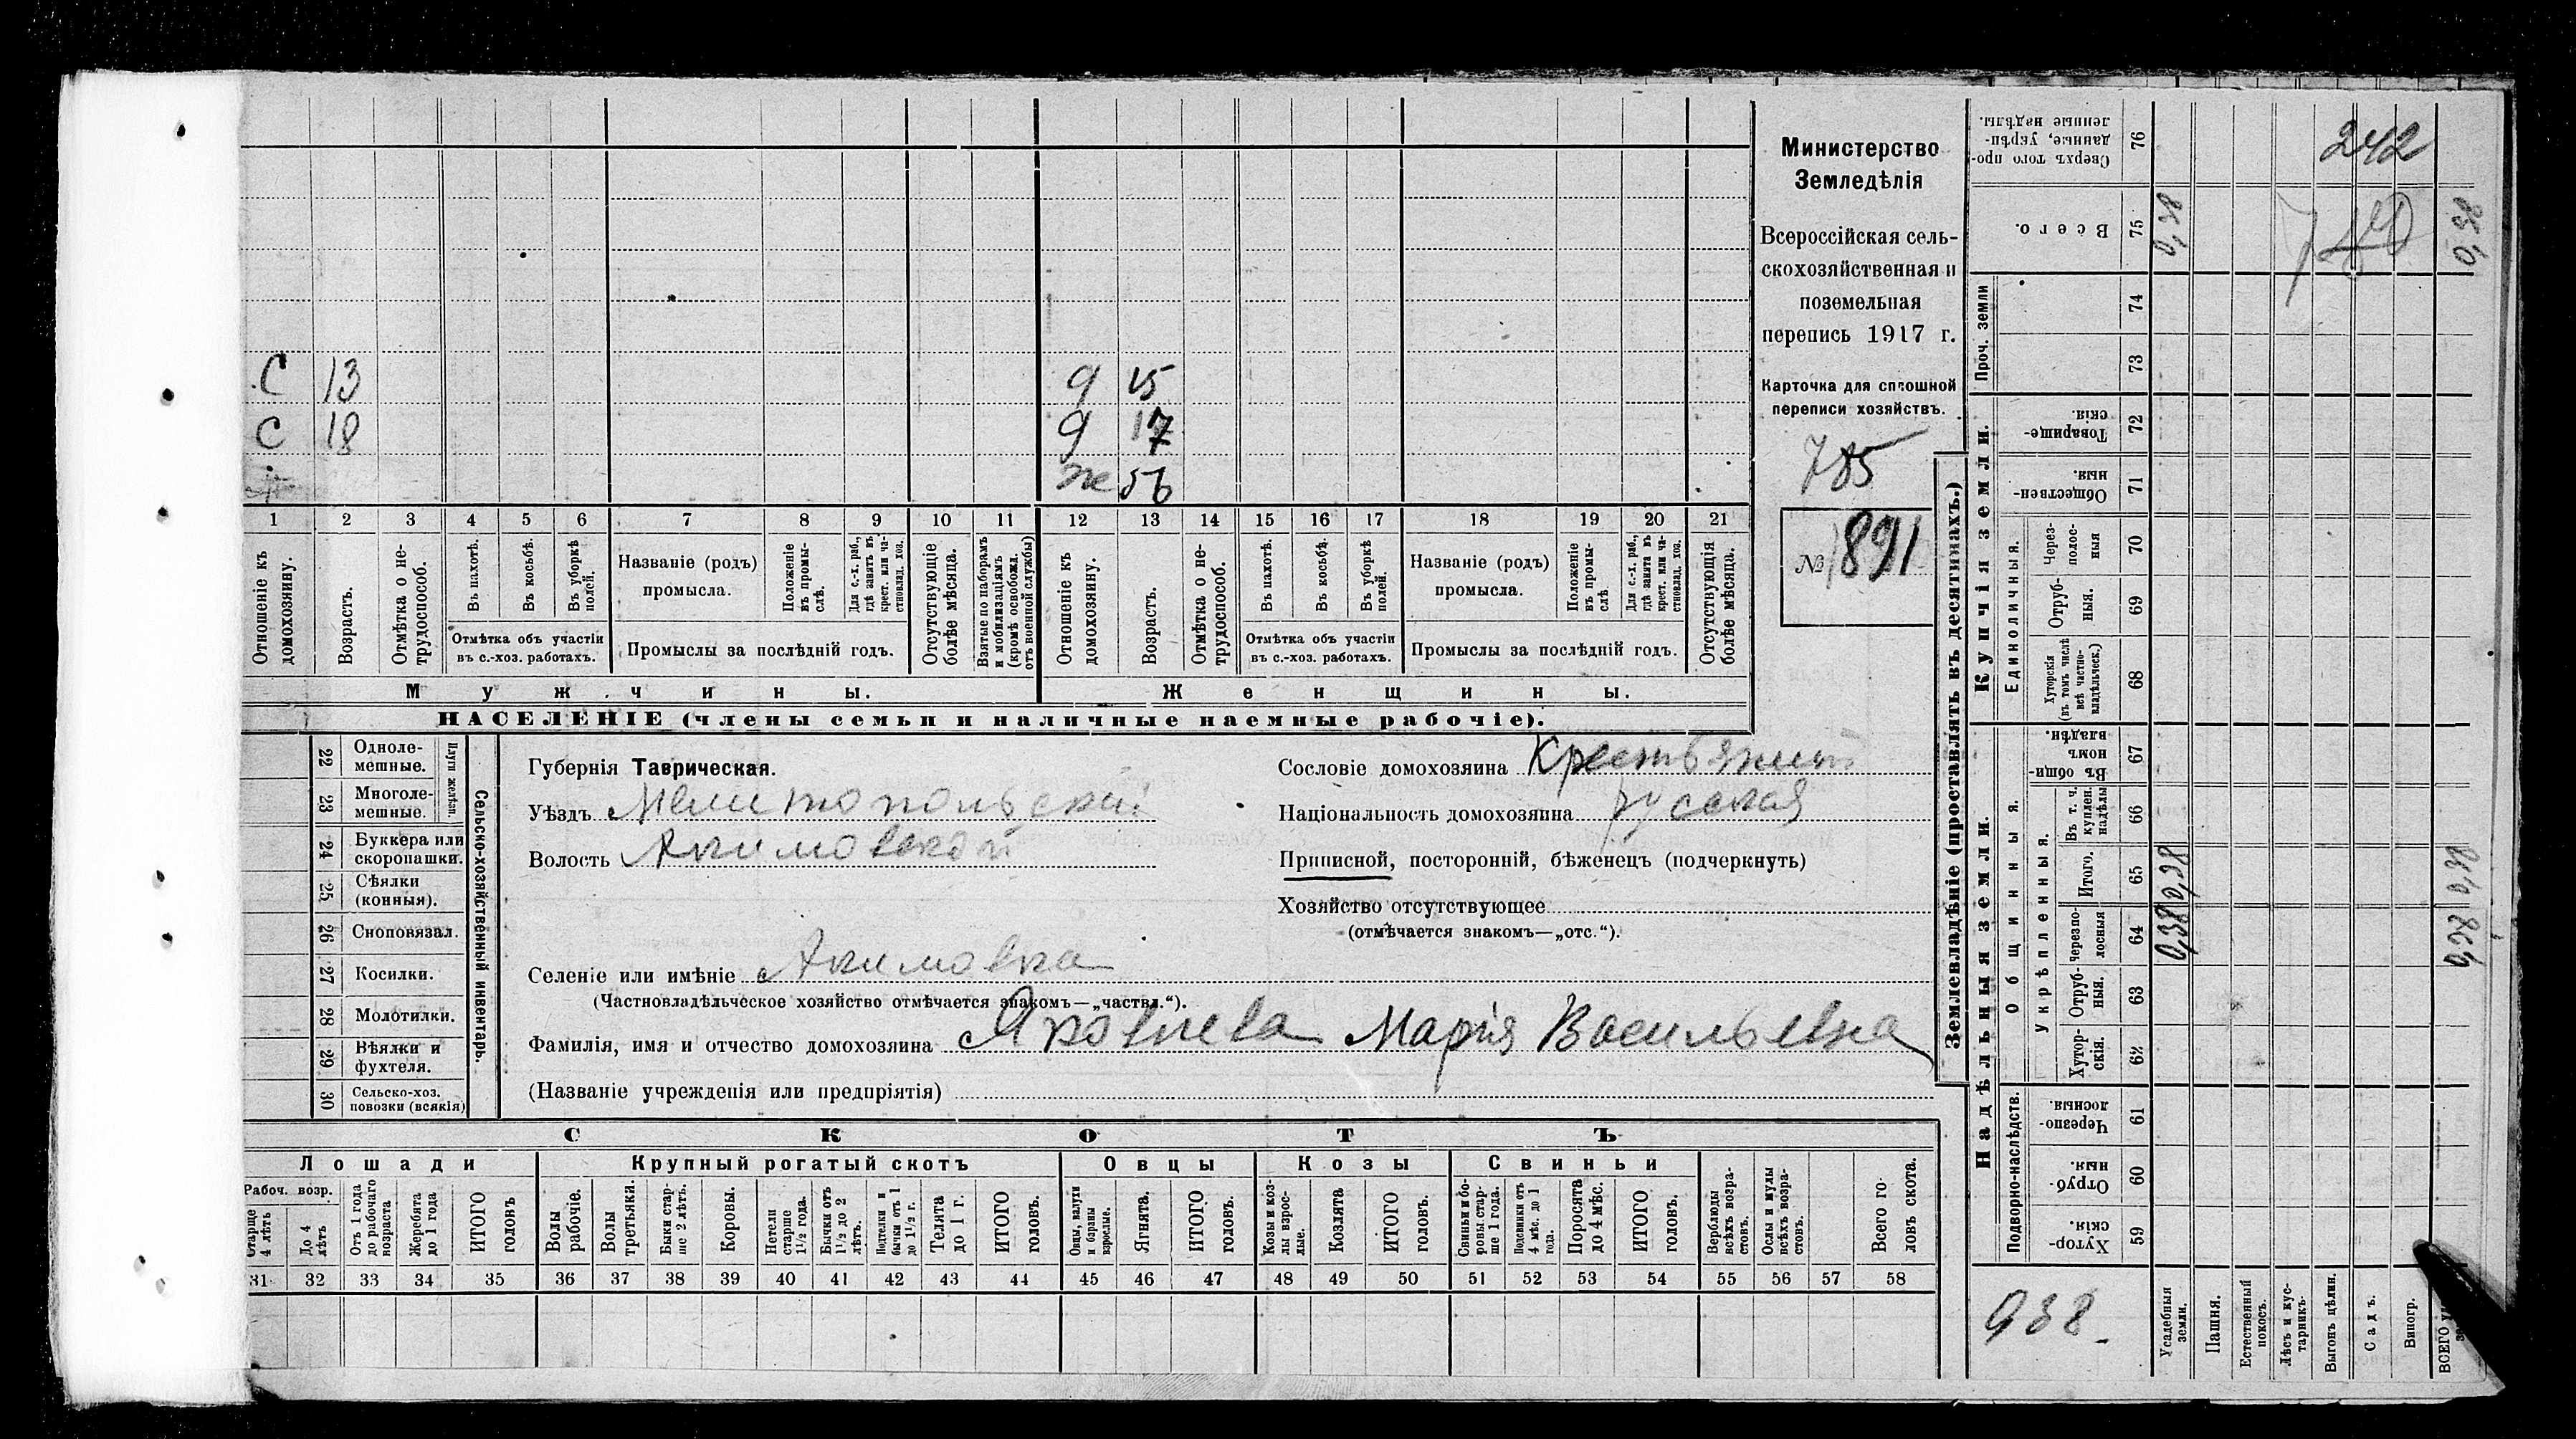 С 13 д 15
С 18 д 17
ж 56
1 2 3 4 5 6 7 8 9 10 11 12 13 14 15 16 17 18 19 20 21
Отношеніе къ домохозяину.
Возрастъ.
Отмѣтка о не-
трудоспособ.
Въ пахотѣ.
Въ косьбѣ.
Въ уборкѣ
полей.
Отмѣтка объ участіи
въ с.-хоз. работахъ.
Названіе (родъ)
промысла.
Положеніе
въ промы-
слѣ.
Для с.-х. раб.,
гдѣ занятъ въ
крест. или ча-
стновлад. хоз.
Промыслы за послѣдній годъ.
Отсутствующіе
болѣе мѣсяца.
Взятые по наборамъ
и мобилизаціямъ
(кромѣ освобожд.
отъ военной службы)
Отношеніе къ
домохозяину.
Возрастъ.
Отмѣтка о не-
трудоспособ.
Въ пахотѣ.
Въ косьбѣ.
Въ уборкѣ
полей.
Отмѣтка объ участіи
въ с.-хоз. работахъ.
Названіе (родъ)
промысла.
Положеніе
въ промы-
слѣ.
Для с.-х. раб.,
гдѣ занята въ
крест. или ча-
стновлад. хоз.
Промыслы за послѣдній годъ.
Отсутствующія
болѣе мѣсяца.
Мужчины.
Женщины.
НАСЕЛЕНІЕ (члены семьи и наличные наемные рабочіе).
Министерство
Земледѣлія
Всероссійская сель-
скохозяйственная и
поземельная
перепись 1917 г.
Карточка для сплошной
переписи хозяйствъ.
785
№ 891
22 Одноле-
мешные.
23 Многоле-
мешные.
Плуги желѣзн.
24 Буккера или
скоропашки.
25 Сѣялки
(конныя).
26 Сноповязал.
27 Косилки.
28 Молотилки.
29 Вѣялки и
фухтеля.
30 Сельско-хоз.
повозки (всякія)
Сельско-хозяйственный инвентарь.
Губернія Таврическая.
Уѣздъ Мелитопольскій
Волость Акимовской
Селеніе или имѣніе Акимовка
(Частновладѣльческое хозяйство отмѣчается знакомъ—„частвл.“).
Фамилія, имя и отчество домохозяина Яковлева Марія Васильевна
(Названіе учрежденія или предпріятія)
Сословіе домохозяина Крестьянин
Національность домохозяина русская
Приписной, посторонній, бѣженецъ (подчеркнуть)
Хозяйство отсутствующее
(отмѣчается знакомъ—„отс.“).
СКОТЪ
Лошади
Крупный рогатый скотъ
Овцы
Козы
Свиньи
Рабоч. возр.
Старше
4 лѣтъ
До 4
лѣтъ
Отъ 1 года
до рабочаго
возраста
Жеребята
до 1 года
ИТОГО
головъ
Волы
рабочіе.
Волы
третьяки.
Быки стар-
ше 2 лѣтъ.
Коровы.
Нетели
старше
1½ года.
Бычки отъ
1½ до 2
лѣтъ.
Подтелки и
бычки отъ 1
до 1½ г.
Телята
до 1 г.
ИТОГО
головъ.
Овцы, валухи
и бараны
взрослые.
Ягнята.
ИТОГО
головъ.
Козы и коз-
лы взрос-
лые.
Козлята
ИТОГО
головъ.
Свиньи и бо-
ровы стар-
ше 1 года.
Подсвинки отъ
4 мѣс. до 1
года.
Поросята
до 4 мѣс.
ИТОГО
головъ.
Верблюды
всѣхъ возра-
стовъ.
Ослы и мулы
всѣхъ возра-
стовъ.
Всего го-
ловъ скота.
31 32 33 34 35 36 37 38 39 40 41 42 43 44 45 46 47 48 49 50 51 52 53 54 55 56 57 58
Землевладѣніе (проставлять въ десятинахъ.)
Надѣльныя земли.
Купчія земли.
Проч. земли
Подворно-наслѣдств.
Общинныя.
Укрѣпленныя.
Единоличныя.
59 Хутор-
скія.
60 Отруб-
ныя.
61 Черезпо-
лосныя.
62 Хутор-
скія.
63 Отруб-
ныя.
64 Черезпо-
лосныя
65 Итого.
66 Въ т. ч.
куплен.
надѣлы
67 Въ общин-
номъ
владѣн.
68 Хуторскія
(въ томъ числѣ
всѣ частно-
владѣльческ.)
69 Отруб-
ныя.
70 Через-
полос-
ныя
71 Обществен-
ныя.
72 Товарище-
скія.
73
74
75 Всего.
76 Сверхъ того про-
данные, укрѣп-
ленные надѣлы.
Усадебныя
земли.
0,38 0,38 0,38
Пашня.
Естественный
покосъ.
Лѣсъ и кус-
тарникъ.
Выгонъ цѣлин.
Садъ.
Виногр.
ВСЕГО
0,38 0,38 0,38
242
938